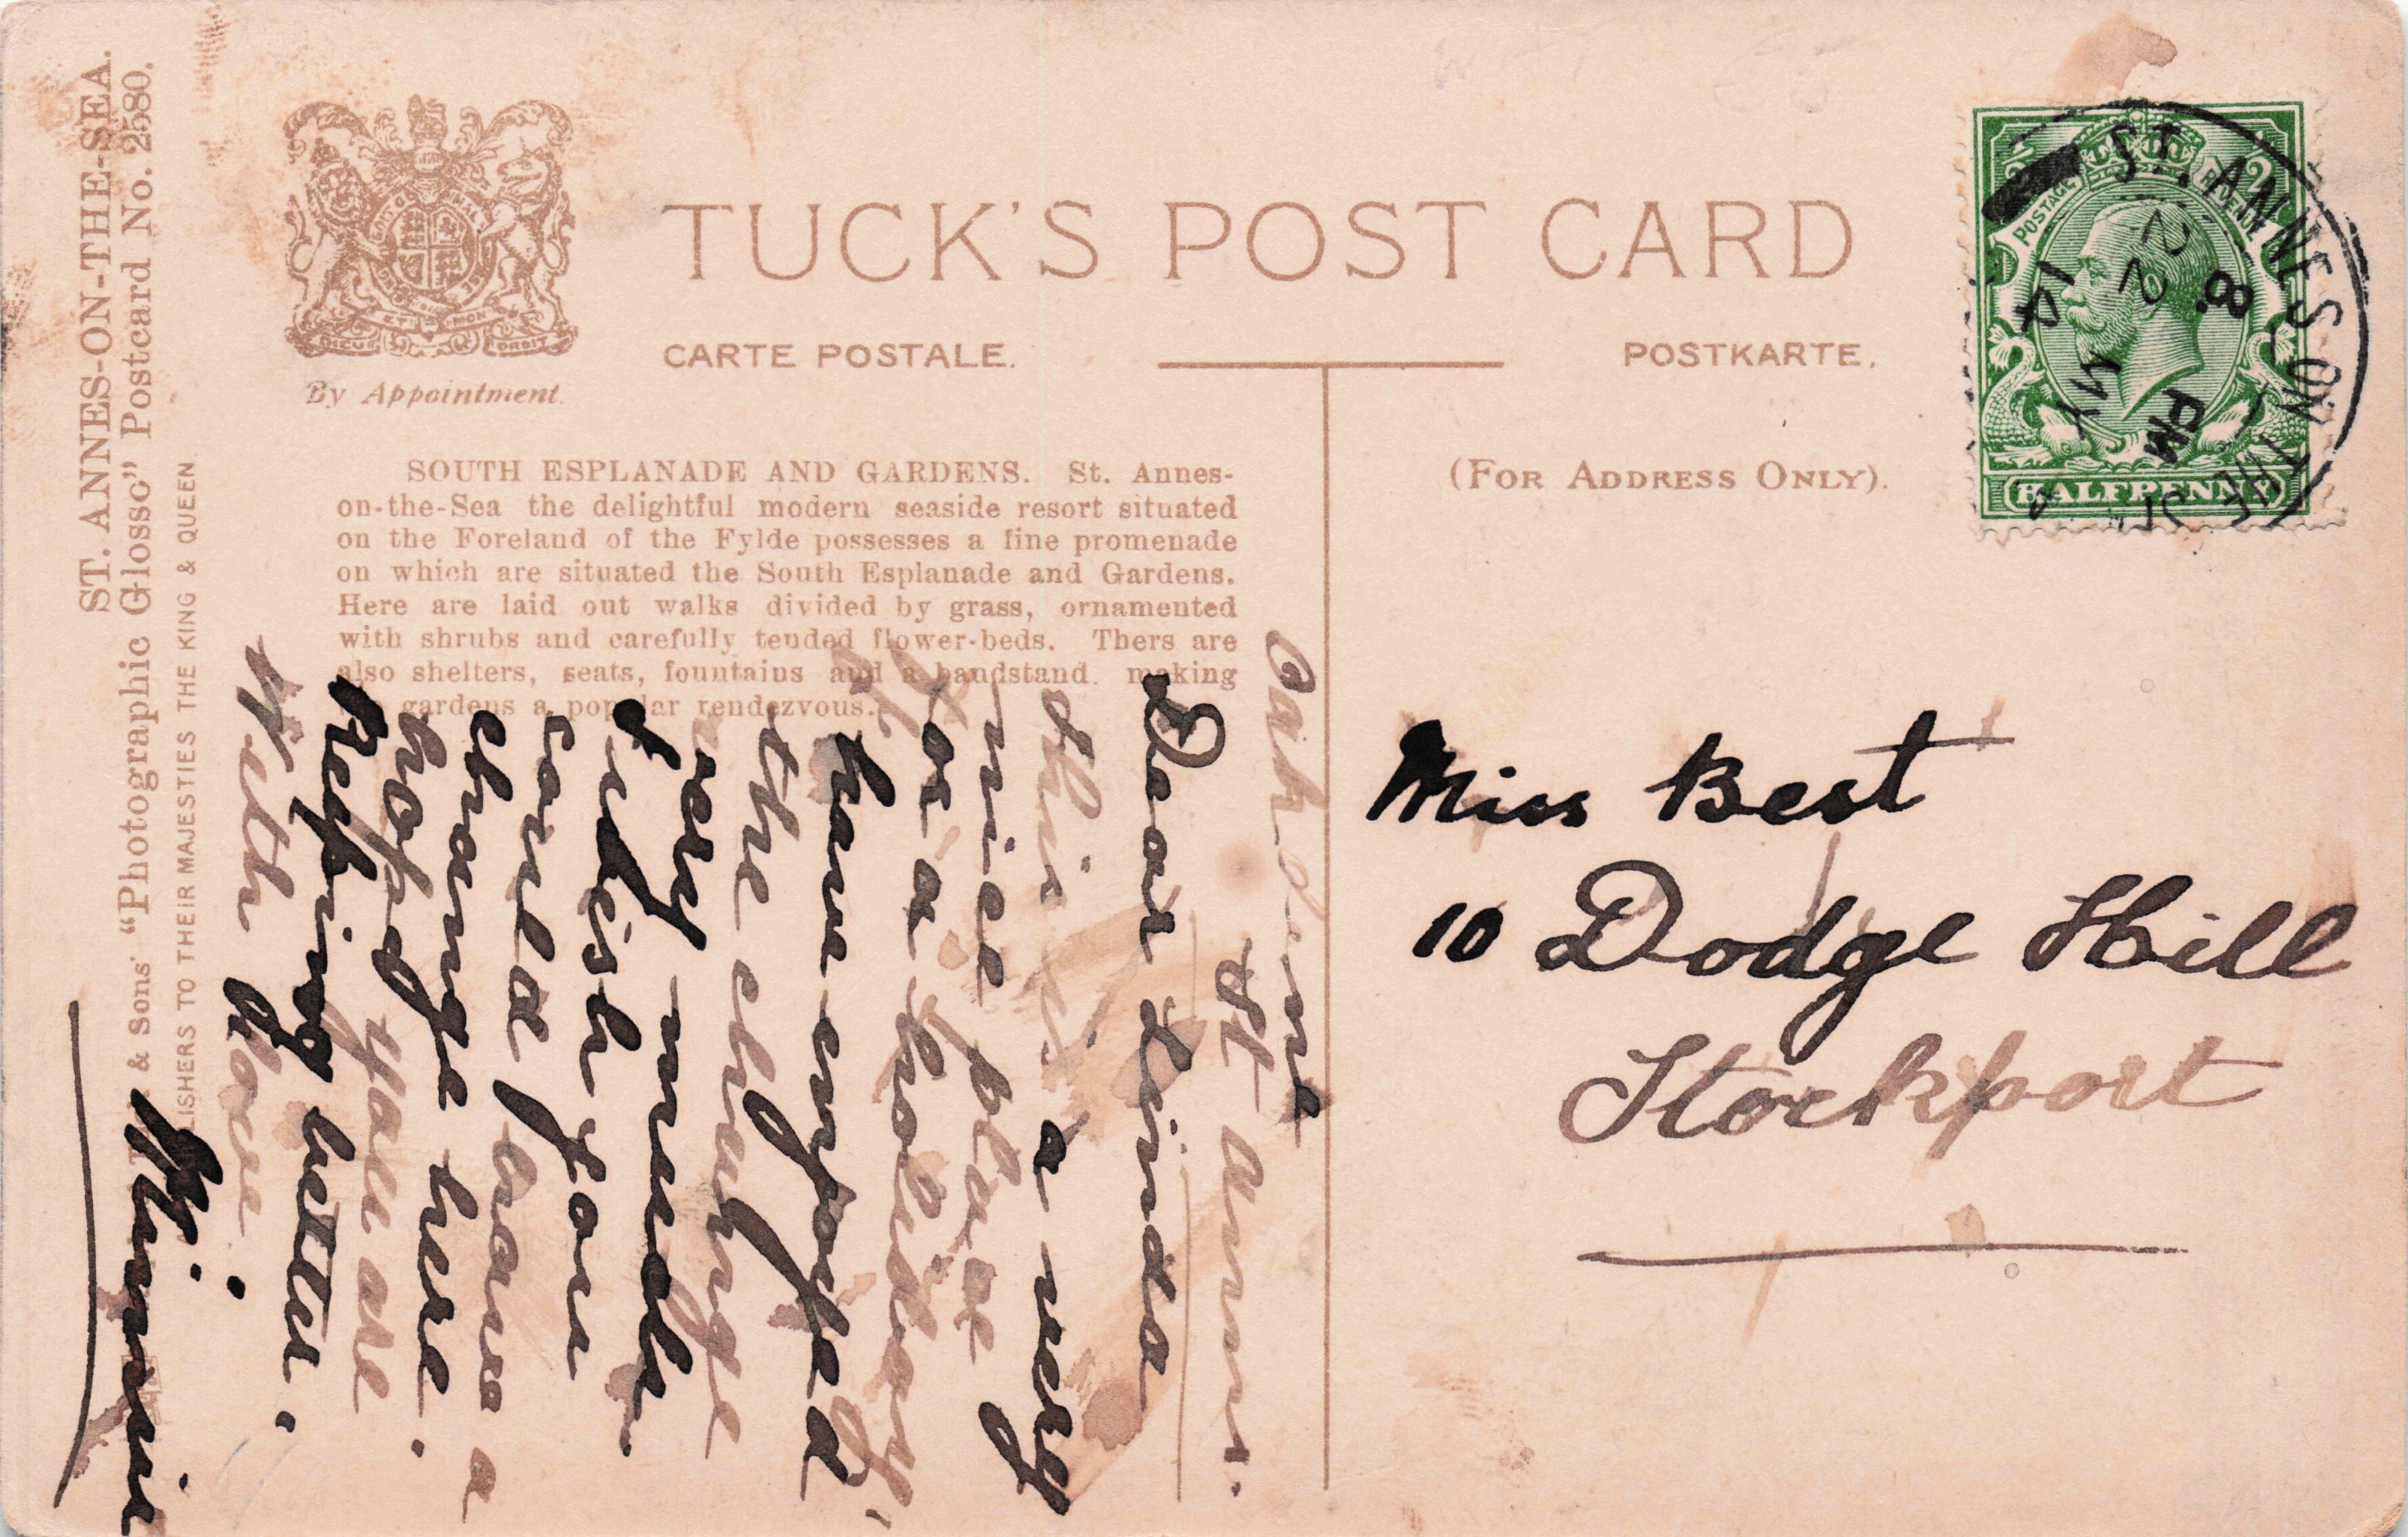 ST. ANNES-ON-THE-SEA.
& Sons' "Photographic Glosso" Postcard No. 2580.
TO THEIR MAJESTIES THE KING & QUEEN
By Appointment.
TUCK'S POST CARD
CARTE POSTALE.
POSTKARTE.
SOUTH ESPLANADE AND GARDENS. St. Annes-
on-the-Sea the delightful modern seaside resort situated
on the Foreland of the Fylde possesses a fine promenade
on which are situated the South Esplanade and Gardens.
Here are laid out walks divided by grass, ornamented
with shrubs and carefully tended flower-beds. Thers are
also shelters, seats, fountains and a bandstand, making
gardens a popular rendezvous.
(FOR ADDRESS ONLY).
POSTAGE
HALFPENNY
ST. ANNES ON THE SEA
8. PM
22 MY
14
St Annes.
Dear Linda
this is a very
nice place
for a holiday,
I have enjoyed
the change
very much.
I wish you
could have a
change here.
hoped you are
keeping better.
With love.
Minnie
Miss Best
10 Dodge Hill
Stockport